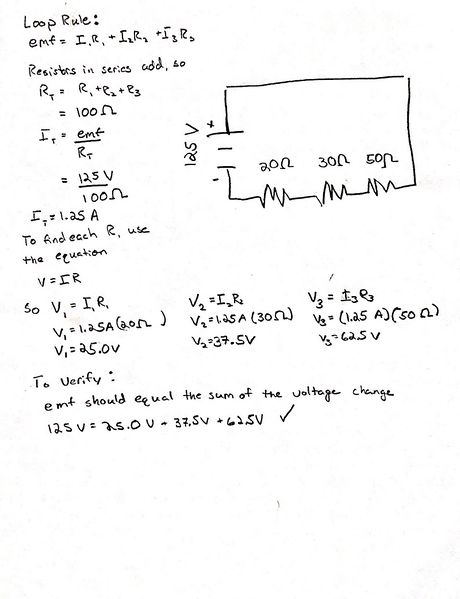 Loop Rule:
emf = I₁R₁ + I₂R₂ + I₃R₃
Resistors in series add, so
R_T = R₁+R₂+R₃
= 100Ω
I_T = emf
R_T
= 125 V
100Ω
I_T = 1.25 A
+
125 V
-
20Ω 30Ω 50Ω
To find each R, use
the equation
V = IR
So V₁ = I₁R₁
V₁ = 1.25A (20Ω)
V₁ = 25.0V
V₂ = I₂R₂
V₂ = 1.25A (30Ω)
V₂ = 37.5V
V₃ = I₃R₃
V₃ = (1.25 A)(50Ω)
V₃ = 62.5 V
To verify:
emf should equal the sum of the voltage change
125 V = 25.0 V + 37.5V + 62.5V ✓